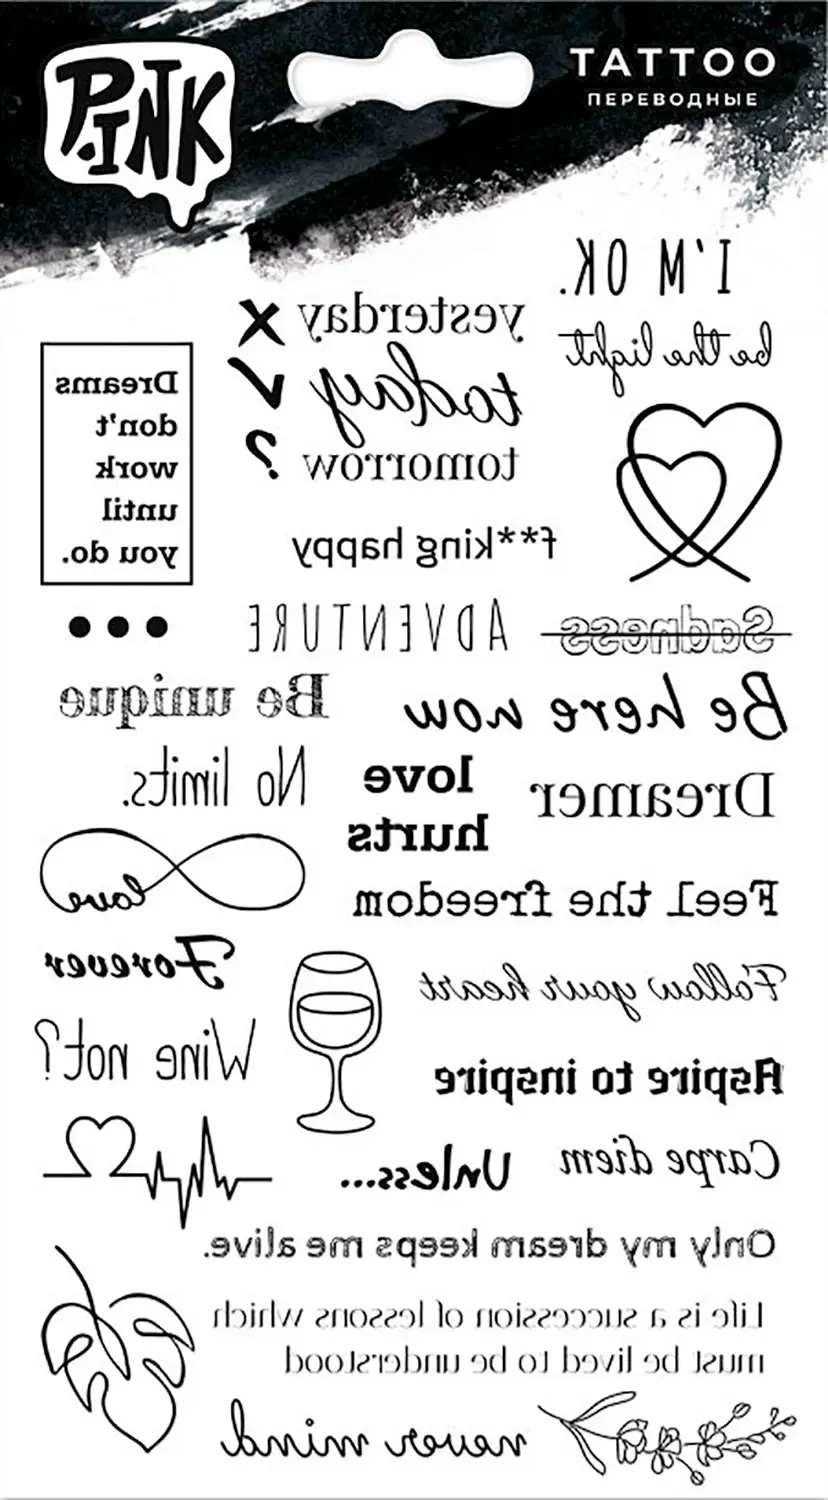 PINK
TATTOO
ПЕРЕВОДНЫЕ
I'M OK.
yesterday
be the light
today
Dreams
don't
work
until
you do.
tomorrow ?
f**king happy
ADVENTURE
Sadness
Be unique
Be here now
No limits.
love
hurts
Dreamer
love
Feel the freedom
Forever
Follow your heart
Wine not?
Aspire to inspire
Unless...
Carpe diem
Only my dream keeps me alive.
Life is a succession of lessons which
must be lived to be understood
never mind